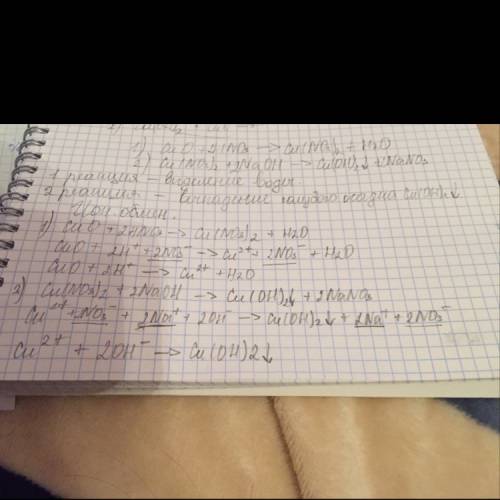 1) CuO + 2HNO₃ → Cu(NO₃)₂ + H₂O
2) Cu(NO₃)₂ + 2NaOH → Cu(OH)₂↓ + 2NaNO₃
1 реакция – выделение воды
2 реакция – выпадение голубого осадка Cu(OH)₂↓
Ион обмен.
1) CuO + 2HNO₃ → Cu(NO₃)₂ + H₂O
CuO + 2H⁺ + 2NO₃⁻ → Cu²⁺ + 2NO₃⁻ + H₂O
CuO + 2H⁺ → Cu²⁺ + H₂O
2) Cu(NO₃)₂ + 2NaOH → Cu(OH)₂↓ + 2NaNO₃
Cu²⁺ + 2NO₃⁻ + 2Na⁺ + 2OH⁻ → Cu(OH)₂↓ + 2Na⁺ + 2NO₃⁻
Cu²⁺ + 2OH⁻ → Cu(OH)2↓